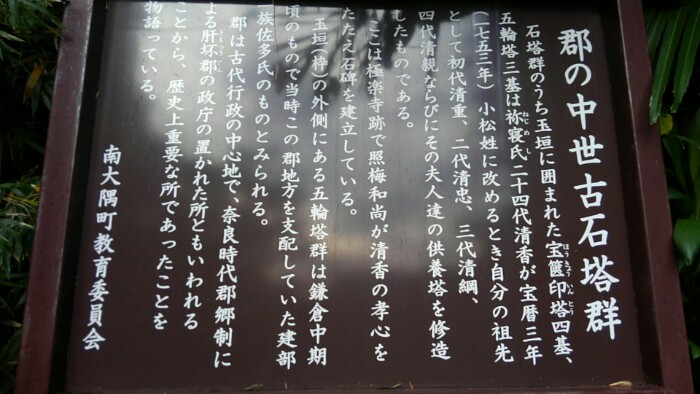 郡の中世古石塔群
石塔群のうち玉垣に囲まれた宝篋印塔四基、
ほうきょういんとう
五輪塔三基は祢寝氏二十四代清香が宝暦三年
ねじめし
(一七五三年) 小松姓に改めるとき自分の祖先
として初代清重、二代清忠、三代清綱、
四代清親ならびにその夫人達の供養塔を修造
したものである。
ここは極楽寺跡で照梅和尚が清香の孝心を
たたえ石碑を建立している。
玉垣(枠)の外側にある五輪塔群は鎌倉中期
頃のもので当時この郡地方を支配していた建部
族佐多氏のものとみられる。
郡は古代行政の中心地で、奈良時代郡郷制に
よる肝坏郡の政庁の置かれた所ともいわれる
ことから、歴史上重要な所であったことを
物語っている。
南大隅町教育委員会